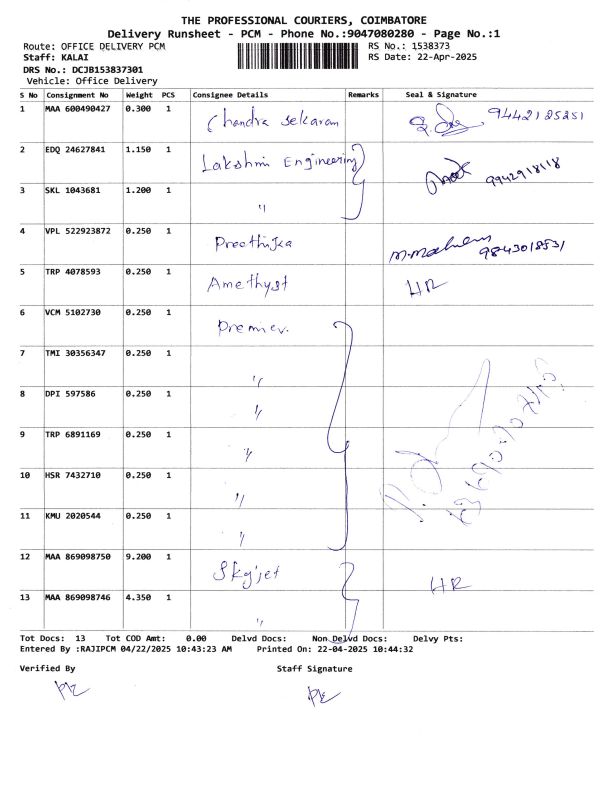 THE PROFESSIONAL COURIERS, COIMBATORE
Delivery Runsheet - PCM - Phone No.:9047080280 - Page No.:1
Route: OFFICE DELIVERY PCM
RS No.: 1538373
Staff: KALAI
RS Date: 22-Apr-2025
DRS No.: DCJB153837301
Vehicle: Office Delivery
S No Consignment No Weight PCS Consignee Details Remarks Seal & Signature
1 MAA 600490427 0.300 1 Chandra Sekaran
2 EDQ 24627841 1.150 1 Lakshmi Engineering 9942918118
3 SKL 1043681 1.200 1 "
4 VPL 522923872 0.250 1 Preethika 9843018531
5 TRP 4078593 0.250 1 Amethyst HR
6 VCM 5102730 0.250 1 Premier.
7 TMI 30356347 0.250 1 "
8 DPI 597586 0.250 1 "
9 TRP 6891169 0.250 1 "
10 HSR 7432710 0.250 1 "
11 KMU 2020544 0.250 1 "
12 MAA 869098750 9.200 1 Skyjet HR
13 MAA 869098746 4.350 1 "
Tot Docs: 13 Tot COD Amt: 0.00 Delvd Docs: Non Delvd Docs: Delvy Pts:
Entered By :RAJIPCM 04/22/2025 10:43:23 AM Printed On: 22-04-2025 10:44:32
Verified By Staff Signature